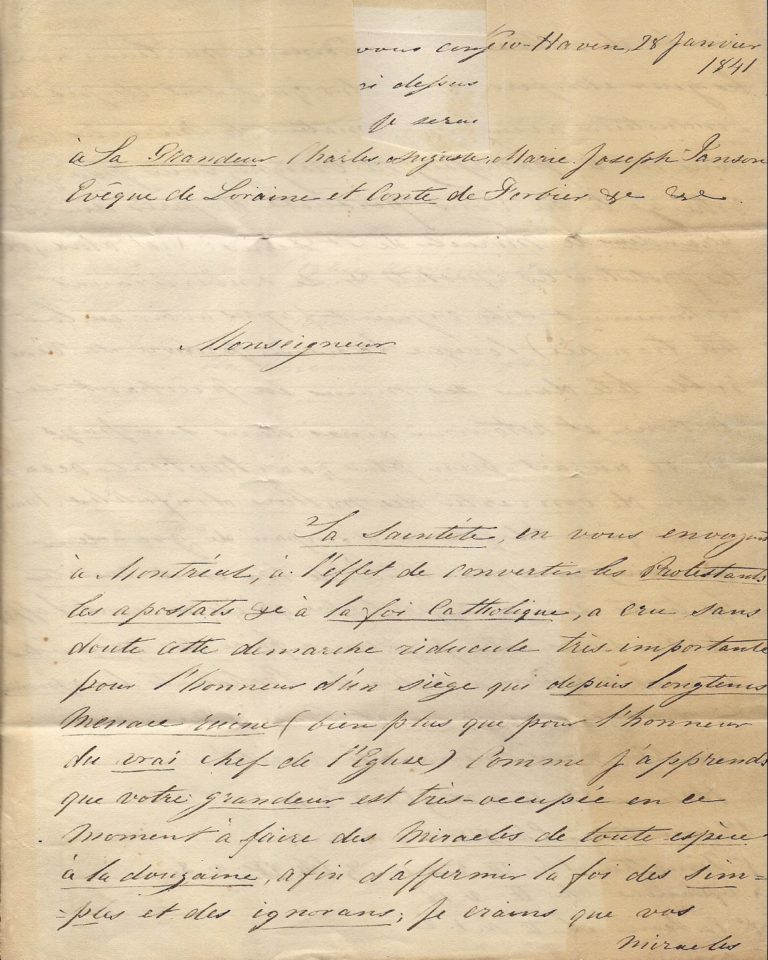 vous conf w-Haven, 28 Janvier
1841
ri depus
je serai
à Sa Grandeur Charles, Auguste, Marie, Joseph Janson
Evêque de Loraine et Conte de Forbier &c &c.
Monseigneur
Sa Saintété, en vous envoyant
à Montréal, à l'effet de convertir les Protestants
les apostats &c à la foi Catholique, a cru sans
doute cette demarche riducule très-importante
pour l'honneur d'un siège qui depuis longtems
menace ruine (bien plus que pour l'honneur
du vrai chef de l'Eglise) Comme j'apprends
que votre grandeur est très-occupée en ce
moment à faire des Miracles de toute espèce
à la douzaine, afin d'affermir la foi des sim=
=ples et des ignorans, je crains que vos
miracles